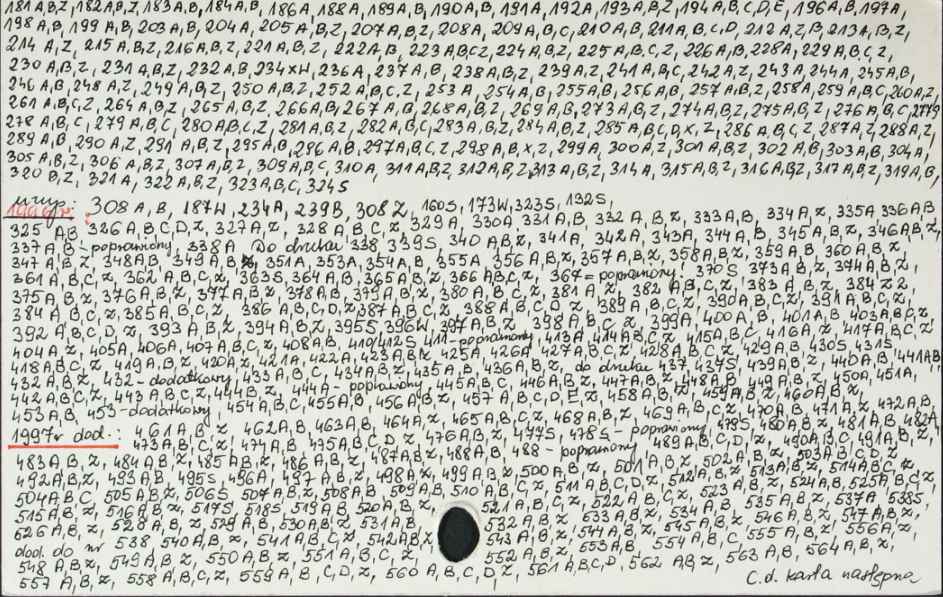 181A,B,Z, 182A,B,Z, 183A,B, 184A,B, 186A, 188A, 189A,B, 190A,B, 191A, 192A, 193A,B,Z, 194A,B,C,D,E, 196A,B, 197A,
198A,B, 199A,B, 203A,B, 204A, 205A,B,Z, 207A,B,Z, 208A, 209A,B,C, 210A,B, 211A,B,C,D, 212A,Z,B, 213A,B,Z,
214A,Z, 215A,B,Z, 216A,B,Z, 221A,B,Z, 222A,B, 223A,B,C,Z, 224A,B,Z, 225A,B,C,Z, 226A,B, 228A, 229A,B,C,Z,
230A,B,Z, 231A,B,Z, 232A,B, 234xW, 236A, 237A,B, 238A,B,Z, 239A,Z, 241A,B,C, 242A,Z, 243A, 244A, 245A,B,
246A,B, 248A,Z, 249A,B,Z, 250A,B,Z, 252A,B,C,Z, 253A, 254A,B, 255A,B, 256A,B, 257A,B,Z, 258A, 259A,B,C, 260A,Z,
261A,B,C,Z, 264A,B,Z, 265A,B,Z, 266A,B, 267A,B, 268A,B,Z, 269A,B, 273A,B,Z, 274A,B,Z, 275A,B,Z, 276A,B,C,
278A,B,C, 279A,B,C, 280A,B,C,Z, 281A,B,Z, 282A,B,C, 283A,B,Z, 284A,B,Z, 285A,B,C,D,X,Z, 286A,B,C,Z, 287A,Z, 288A,Z,
289A,B, 290A,Z, 291A,B,Z, 295A,B, 296A,B, 297A,B,C,Z, 298A,B,X,Z, 299A, 300A,Z, 301A,B,Z, 302A,B, 303A,B, 304A,
305A,B,Z, 306A,B,Z, 307A,B,Z, 309A,B,C, 310A, 311A,B,Z, 312A,B,Z, 313A,B,Z, 314A, 315A,B,Z, 316A,B,Z, 317A,B,Z, 319A,B,
320B,Z, 321A, 322A,B,Z, 323A,B,C, 324S
308A,B, 187W, 234A, 239B, 308Z, 160S, 173W, 323S, 132S,
1996r.
325A,B, 326A,B,C,D,Z, 327A,Z, 328A,B,C,Z, 329A, 330A, 331A,B, 332A,B,Z, 333A,B, 334A,Z, 335A, 336A,B
337A,B - poprawiony, 338A Do druku 338, 339S, 340A,B,Z, 341A, 342A, 343A, 344A,B, 345A,B,Z, 346A,B,Z,
347A,B,Z, 348A,B, 349A,B, 351A, 353A, 354A,B, 355A, 356A,B,Z, 357A,B,Z, 358A,B,Z, 359A,B, 360A,B,Z,
361A,B,C,Z, 362A,B,C,Z, 363S, 364A,B, 365A,B,Z, 366A,B,C,Z, 367 = poprawiony! 370S, 373A,B,Z, 374A,B,Z,
375A,B,Z, 376A,B,Z, 377A,B,Z, 378A,B, 379A,B,Z, 380A,B,C,Z, 381A,Z, 382A,B,C,Z, 383A,B,Z,
384A,B,C,Z, 385A,B,C,Z, 386A,B,C,D,Z, 387A,B,C,Z, 388A,B,C,D,Z, 389A,B,C,Z, 390A,B,C,Z, 391A,B,C,Z,
392A,B,C,D,Z, 393A,B,Z, 394A,B,Z, 395S, 396W, 397A,B,Z, 398A,B,C,Z, 399A, 400A,B, 401A,B, 403A,B,C,Z,
404A,Z, 405A, 406A, 407A,B,C,Z, 408A,B, 410/412S, 411-poprawiony, 413A, 414A,B,C,Z, 415A,B,C, 416A,Z, 417A,B,C,Z
418A,B,C,Z, 419A,B,Z, 420A,Z, 421A, 422A, 423A,B,Z, 425A, 426A, 427A,B,C,Z, 428A,B,C,Z, 429A,B, 430S, 431S,
432A,B,Z, 432-dodatkowy, 433A,B,C, 434A,B,Z, 435A,B, 436A,B,Z, do druku 437, 437S, 439A,B,Z, 440A,B, 441A,B,
442A,B,C,Z, 443A,B,C,Z, 444B,Z, 444A-poprawiony, 445A,B,C, 446A,B,Z, 447A,B,Z, 448A,B, 449A,B,Z, 450A, 451A,
453A,B, 453-dodatkowy, 454A,B,C, 455A,B, 456A,B,Z, 457A,B,C,D,E,Z, 458A,B,Z, 459A,B,Z, 460A,B,Z,
1997r dod.: 461A,B,Z, 462A,B, 463A,B, 464A,Z, 465A,B,C,Z, 468A,B,Z, 469A,B,C,Z, 470A,B, 471A,Z, 472A,B,
473A,B,C,Z, 474A,B, 475A,B,C,D,Z, 476A,B,Z, 477S, 478S-poprawiony, 479S, 480A,B,Z, 481A,B, 482A,
483A,B,Z, 484A,B,Z, 485A,B,Z, 486A,B,Z, 487A,B,Z, 488A,B, 488-poprawiony, 489A,B,C,D,Z, 490A,B,C, 491A,B,Z,
492A,B,Z, 493A,B, 495S, 496A, 497A,B,Z, 498A,Z, 499A,B,Z, 500A,B,Z, 501A,B,Z, 502A,B,Z, 503A,B,C,D,Z
504A,B,C, 505A,B,Z, 506S, 507A,B,Z, 508A,B, 509A,B, 510A,B,C,Z, 511A,B,C,D,Z, 512A,B,Z, 513A,B,Z, 514A,B,C,Z,
515A,B,Z, 516A,B,Z, 517S, 518S, 519A,B, 520A,B,Z, 521A,B,C,Z, 522A,B,C,Z, 523A,B,Z, 524A,B, 525A,B,C,Z,
526A,B,Z, 528A,B,Z, 529A,B, 530A,B,Z, 531A,B, 532A,B,Z, 533A,B,Z, 534A,B, 535A,B,Z, 537A, 538S,
dod. do nr 538, 540A,B,Z, 541A,B,C,Z, 542A,B,Z, 543A,B,Z, 544A,B,Z, 545A,B,Z, 546A,B,Z, 547A,B,Z,
548A,B,Z, 549A,B,Z, 550A,B,Z, 551A,B,C,Z, 552A,B,Z, 553A,B, 554A,B,C, 555A,B,Z, 556A,Z,
557A,B,Z, 558A,B,C,Z, 559A,B,C,D,Z, 560A,B,C,D,Z, 561A,B,C,D, 562A,B,Z, 563A,B, 564A,B,Z,
C.d. karta następna